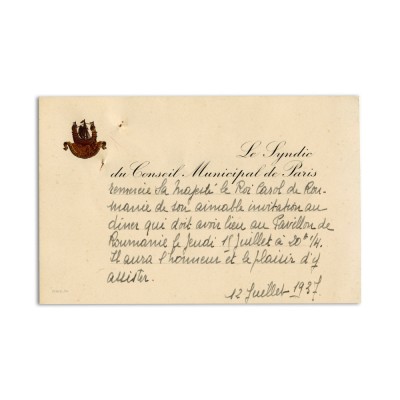 Le Syndic
du Conseil Municipal de Paris
remercie Sa Majesté le Roi Carol de Rou-
manie de son aimable invitation au
diner qui doit avoir lieu au Pavillon de
Roumanie le Jeudi 15 Juillet à 20h 1/4.
Il aura l'honneur et le plaisir d'y
assister.
12 Juillet 1937